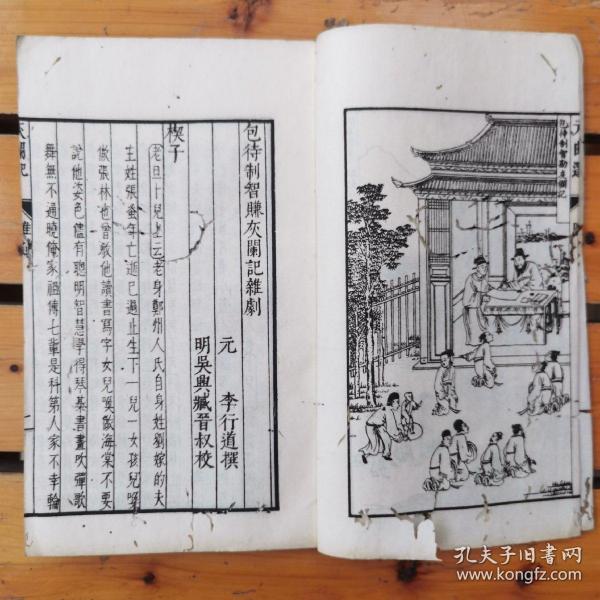 元曲選
包待制智勘灰闌記
包待制智賺灰闌記雜劇
元 李行道撰
明吳興臧晉叔校
楔子
老旦卜兒上云老身鄭州人氏自身姓劉嫁的夫
生姓張蚤年亡逝已過止生下一兒一女孩兒喚
做張林也曾敎他讀書寫字女兒喚做海棠不要
說他姿色儘有聰明智慧學得琴棊書畫吹彈歌
舞無不通曉俺家祖傳七輩是科第人家不幸輪
灰闌記
雜劇
孔夫子旧書网
www.kongfz.com